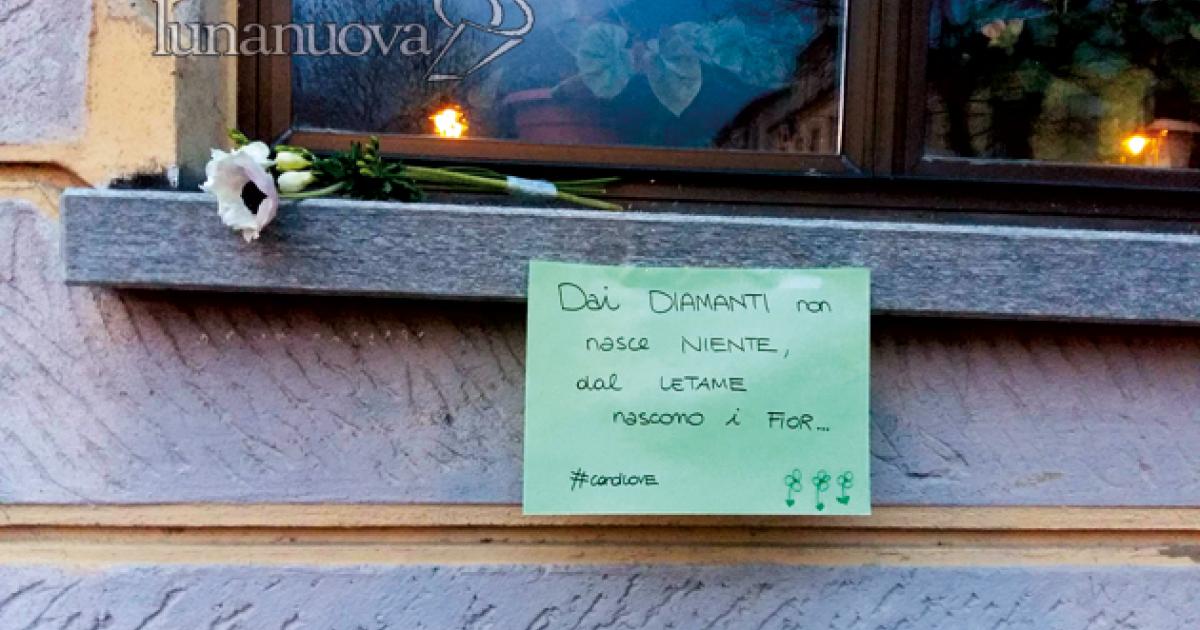 lunanuova
Dai DIAMANTI non
nasce NIENTE,
dal LETAME
nascono i FIOR...
#cardLOVE